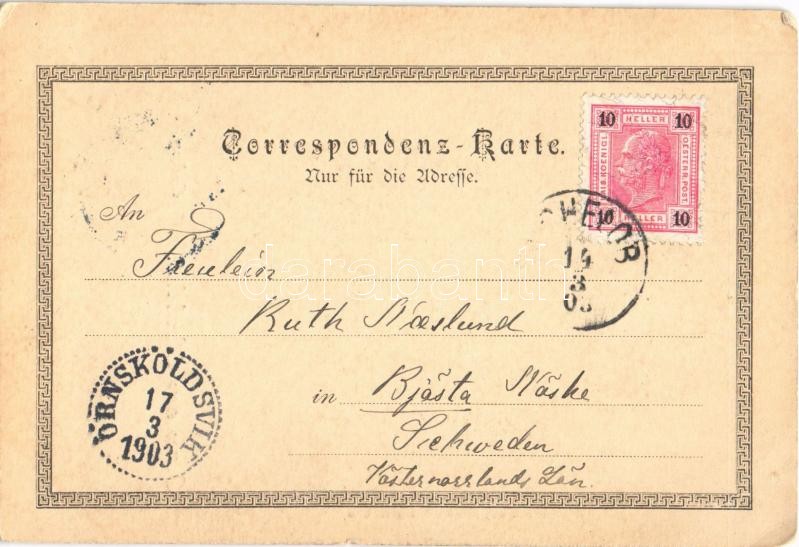 Correspondenz-Karte.
Nur für die Adresse.
An
Freulein
Ruth Näslund
in Bjästa Näske
Schweden
Västernorrlands Län.
10 HELLER 10
KAIS. KOENIGL. OESTERR. POST.
10 HELLER 10
14
3
03
ÖRNSKÖLDSVIK
17
3
1903
darabanth